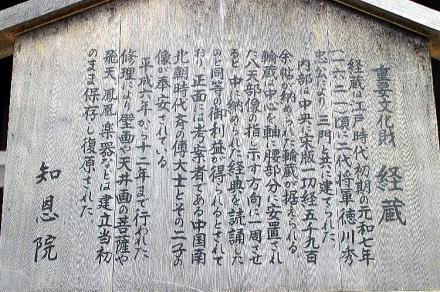 重要文化財 経蔵
経蔵は江戸時代初期の元和七年
(一六二一)頃に二代将軍徳川秀
忠公により、三門と共に建てられた。
内部は中央に宋版一切経五千九百
余帖が納められた輪蔵が据えられる。
輪蔵の中心を軸に腰部分に安置され
た八天部像の指し示す方向に一周させ
ると、中に納められた経典を読誦した
のと同等の御利益が得られるとされて
おり、正面には考案者である中国南
北朝時代斉の傅大士とその二子の
像が奉安されている。
平成六年から十二年まで行われた
修理により壁画や天井画の菩薩や
飛天、鳳凰、楽器などは建立当初
のまま保存し復原された。
知恩院